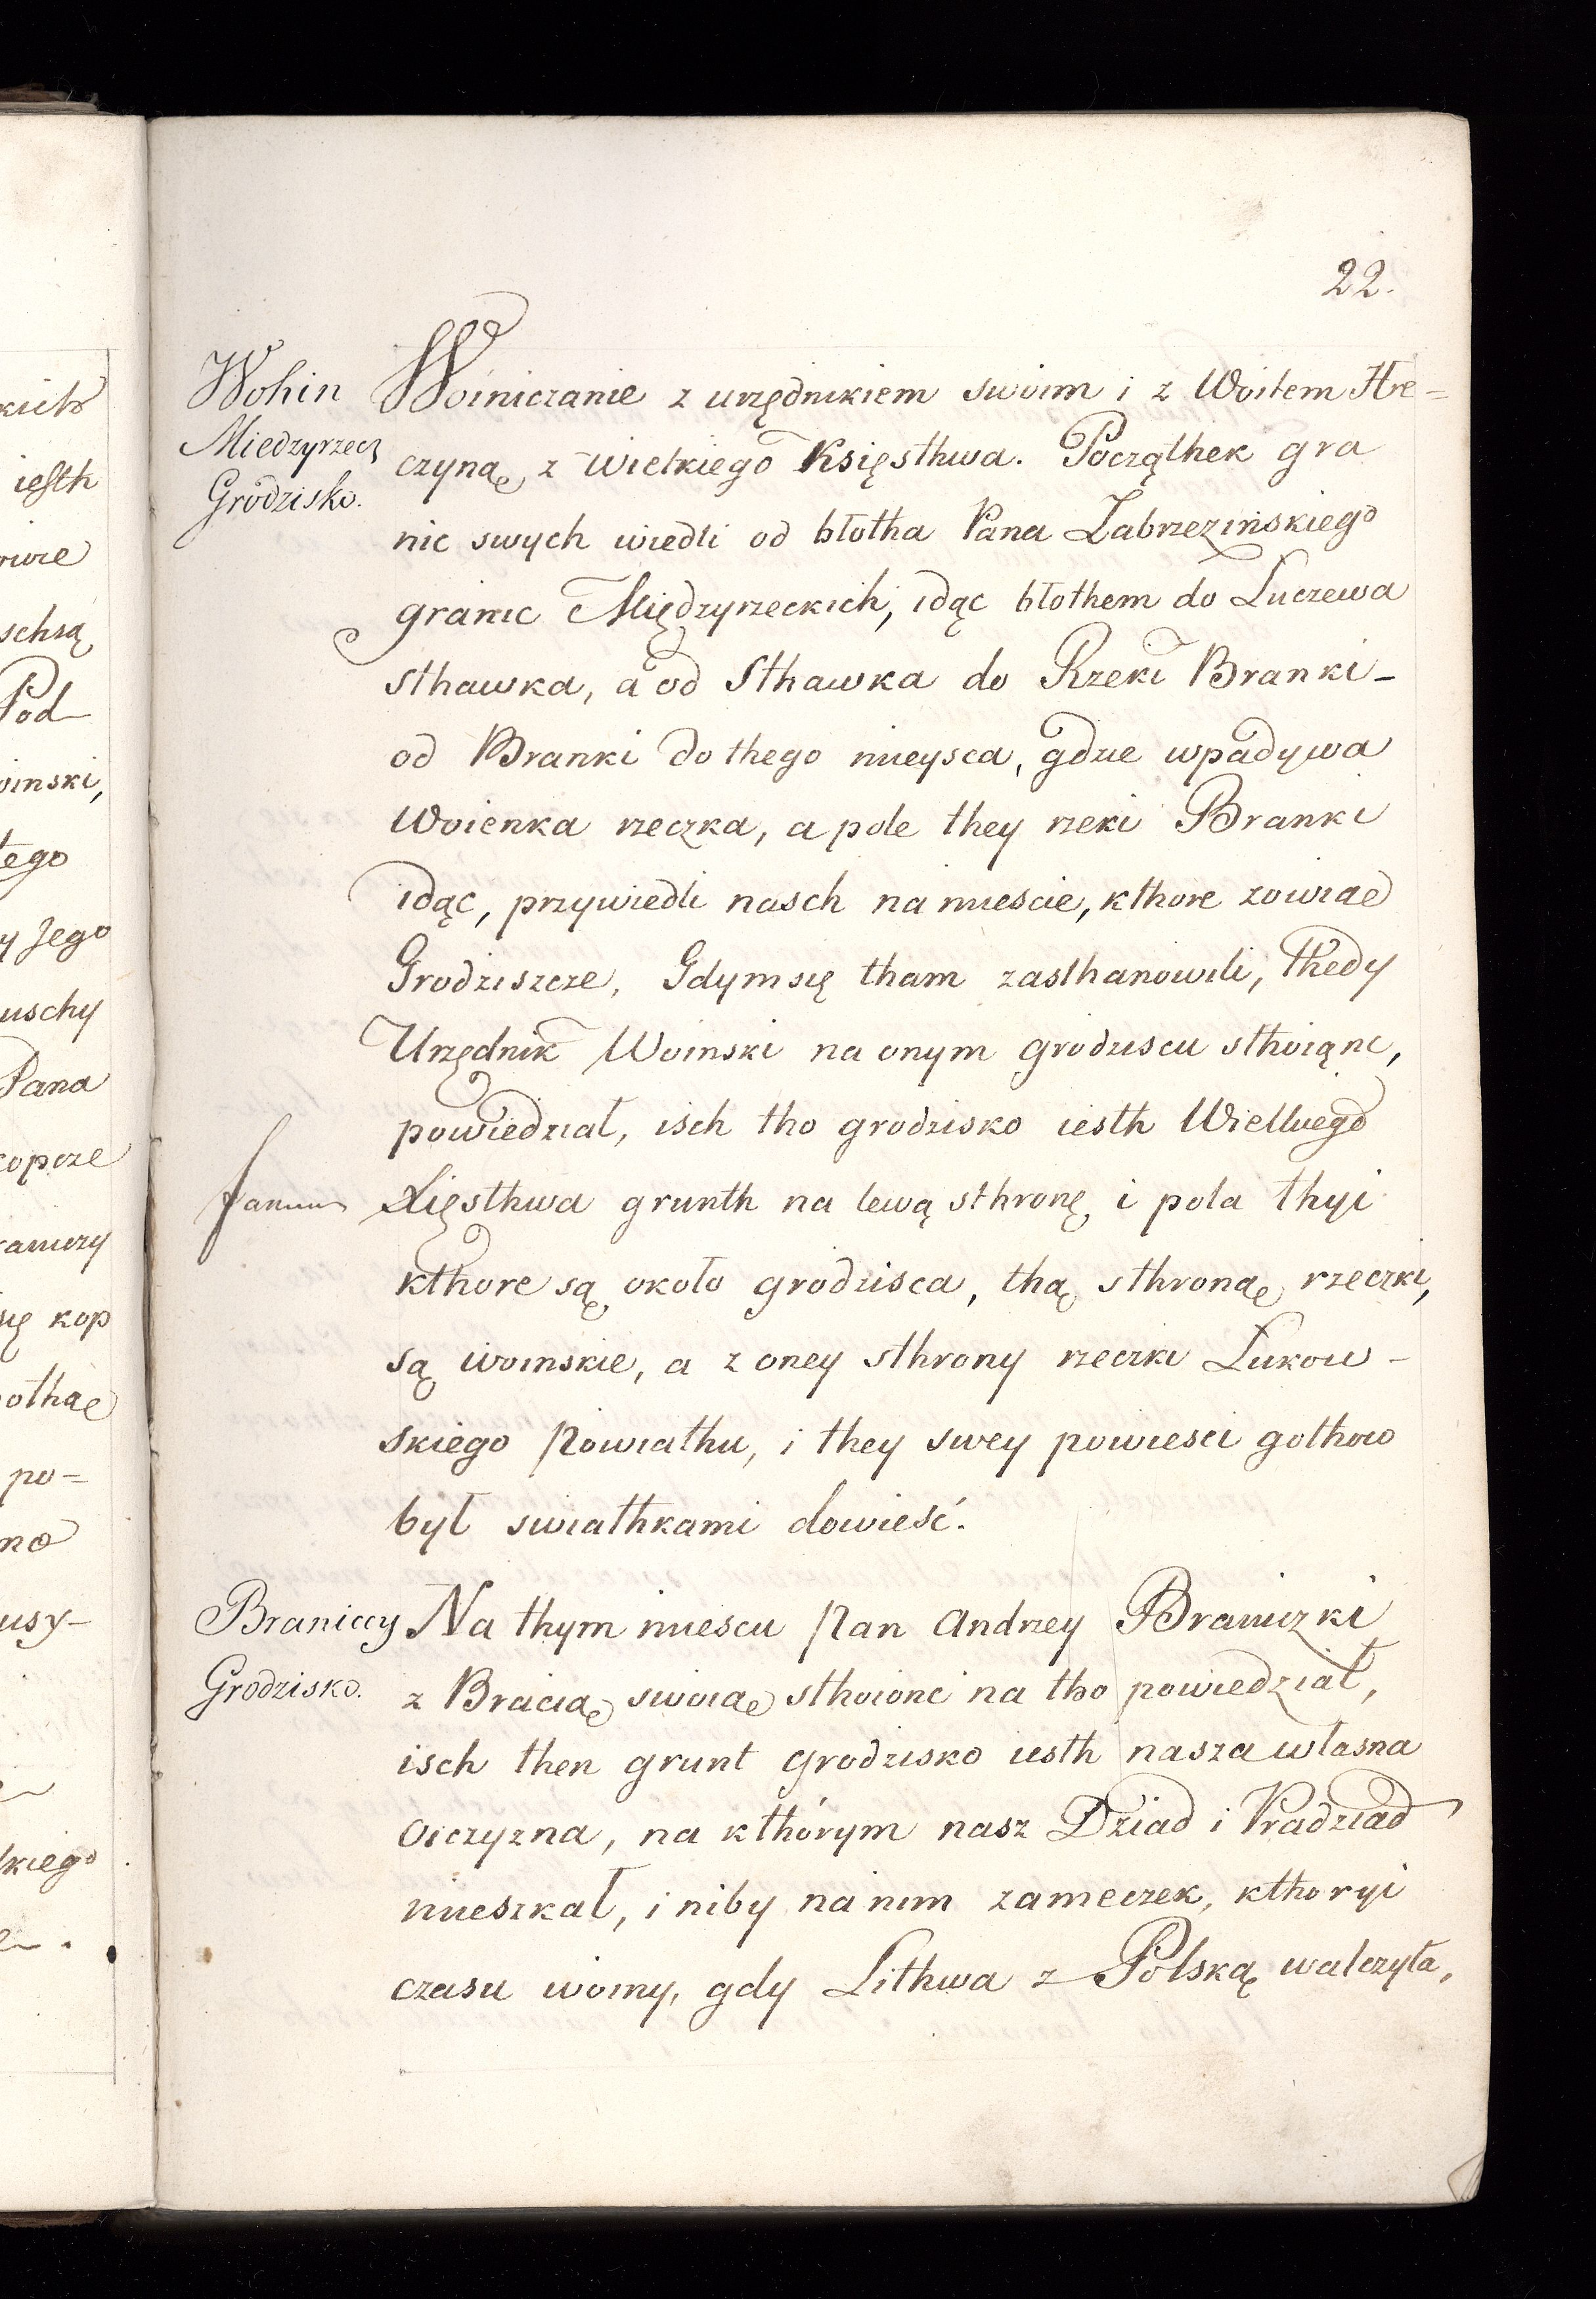 22.
Wohin
Miedzyrzecz
Grodzisko.
Woiniczanie z urzędnikiem swoim i z Woitem Hre=
czyną z Wielkiego Księsthwa. Począthek gra
nic swych wiedli od błotha Pana Zabrzezińskiego
granic Międzyrzeckich, idąc błothem do Luczewa
sthawka, a od Sthawka do Rzeki Branki_
od Branki do thego mieysca, gdzie wpadywa
Woienka rzeczka, a pole they rzeki Branki
idąc, przywiedli nasch na miescie, kthore zowiae
Grodziszcze, Gdym się tham zasthanowili, thedy
Urzędnik Woinski na onym grodziscu sthoiąnc,
powiedział, isch tho grodzisko iesth Wielkiego
Xięsthwa grunth na lewą sthronę, i pola thyi
kthore są około grodzisca, thą sthroną rzeczki,
są woinskie, a z oney sthrony rzeczki Lukow-
skiego Powiathu, i they swey powiesci gothow
był swiathkami dowieść.
Braniccy
Grodzisko.
Na thym miescu Pan Andrzey Braniczki
z Bracią swoiae sthoionc na tho powiedział,
isch then grunt grodzisko iesth nasza własna
oiczyzna, na kthórym nasz Dziad i Pradziad
mieszkał, i niby na nim zameczek, kthoryi
czasu woiny, gdy Lithwa z Polską walczyła,
kich
iesth
schsą
Pod
oinski,
tego
y Jego
uschy
Pana
kopcze
się kop
othae
po=
no
usy-
lkiego